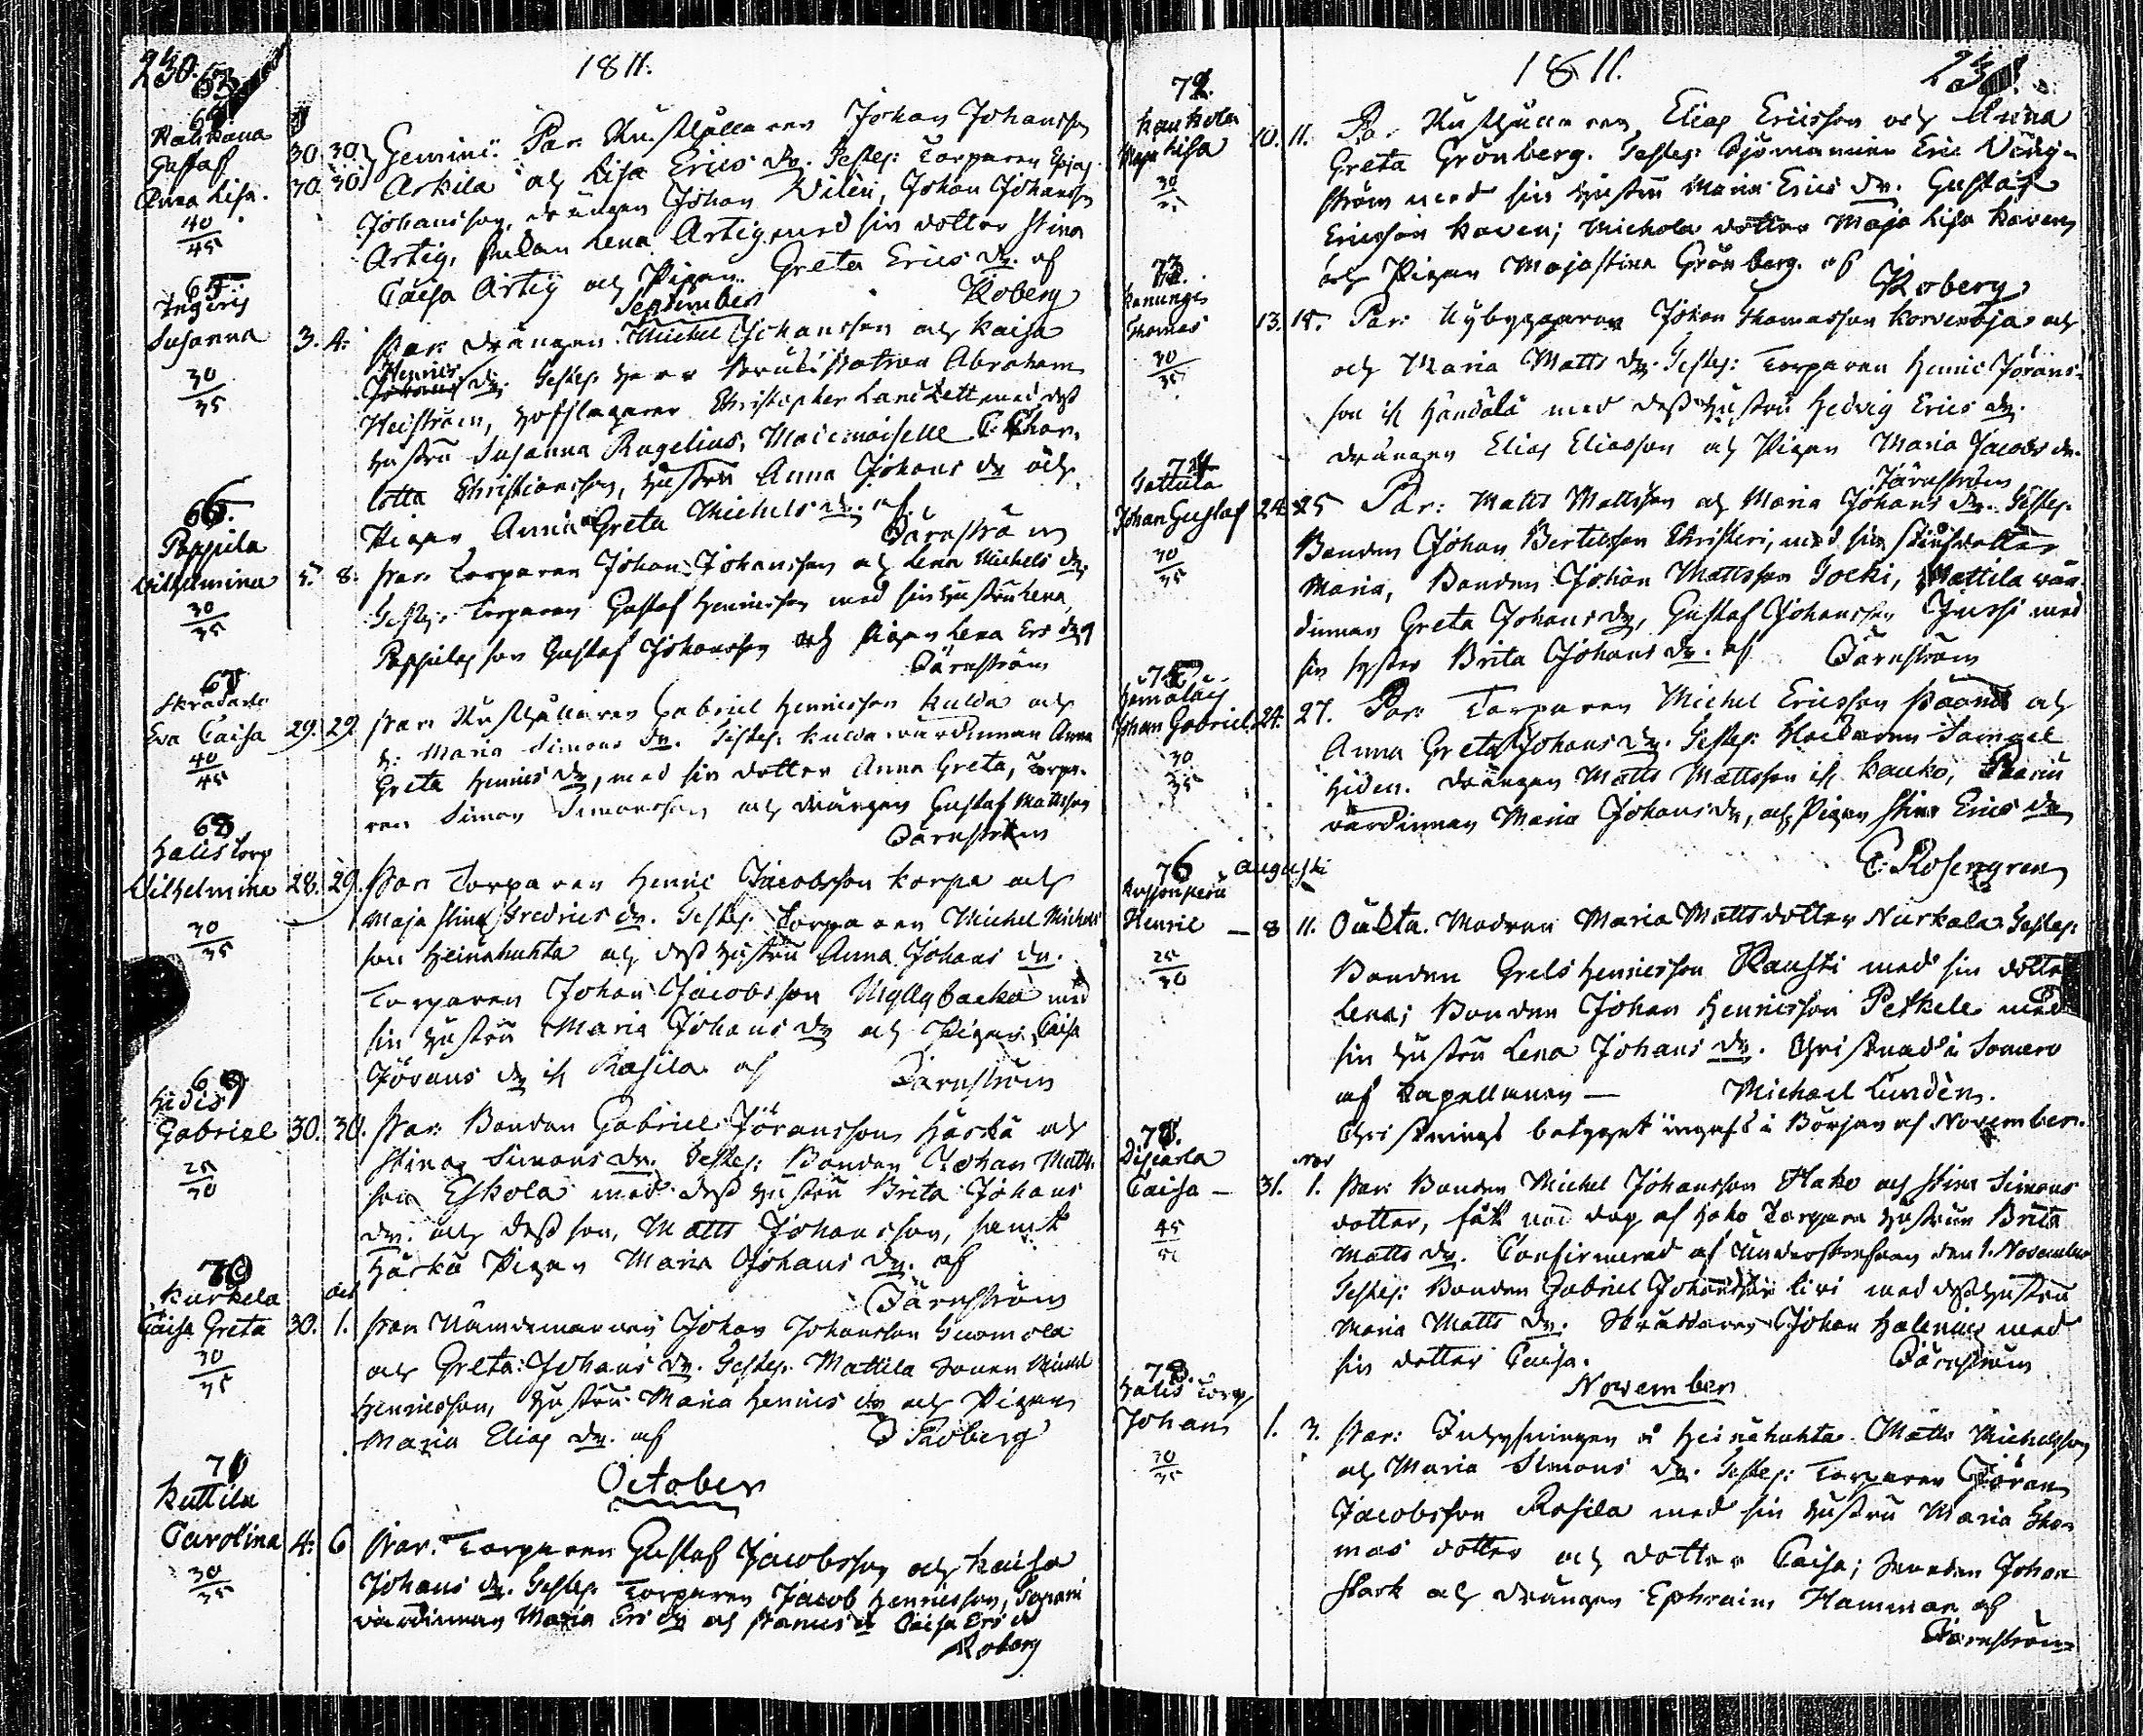 230.
1811.
64
Gustaf
Anna Lisa.
40
45
30 30
30 30
Gemini. Par: Johan Johansson
Arkila och Lisa Erics dr. Testes: Torparen
Johansson, drängen Johan Johan Johansson
Artig, Lena Artig med sin dotter Stina
Caisa Artig och Pigan Greta Erics dr. af
Roberg
September
65.
Susanna
30
35
3. 4. Par: drängen Michel Johansson och Kaisa
Henrics dr. Testes: Herr Abraham
Heiström, Hofslagaren Christopher med dess
Hustru Susanna Rugelius, Mademoiselle Char-
lotta Christiansson, Hustru Anna Johans dr och
Pigan Anna Greta Michels dr. af
Färnström
66.
Pappila
Wilhelmina
30
35
5. 8. Par: Torparen Johan Johansson och Lena Michels dr.
Testes: Torparen Gustaf Henricsson med sin Hustru Lena,
Pappilas son Gustaf Johansson och Pigan Lena Ers dr af
Färnström
67
Eva Caisa
40
45
29. 29 Par: Gabriel Henricsson Kulda och
H: Maria Simons dr. Testes: Kulda värdinnan Anna
Greta Henrics dr, med sin dotter Anna Greta, Torpa-
ren Simon Simonsson och drängen Gustaf Mattsson
Färnström
68
Halis torp
Wilhelmina
30
35
28. 29. Par: Torparen Henric Jacobsson Korpa och
Maja Stina Fredrics dr. Testes: Torparen Michel Michels-
son Heinähuhta och dess Hustru Anna Johans dr.
Torparen Johan Jacobsson Myllybacka med
sin Hustru Maria Johans dr och Pigan Caisa
Jörans dr if: Rasila af
Färnström
69
Hidis
Gabriel
25
30
30. 30. Par: Bonden Gabriel Jöransson Härkä och
Stina Simons dr. Testes: Bonden Johan Matts-
son Eskola med dess Hustru Brita Johans
dr. och dess son, Matts Johansson, samt
Härkä Pigan Maria Johans dr. af
Färnström
70
Kurkela
Caisa Greta
30
35
oct
30. 1. Par: Nämndemannen Johan Johansson
och Greta Johans dr. Testes: Mattila sonen Michel
Henricsson, Hustru Maria Henrics dr och Pigan
Maria Elias dr. af
Roberg
October
71
Kuttila
Carolina
30
35
4. 6 Par: Torparen Gustaf Jacobsson och Kaisa
Johans dr. Testes: Torparen Jacob Henricsson,
värdinnan Maria Ers dr och Caisa Ers dr
Roberg
1811.
231.
72.
Maja Lisa
30
35
10. 11. Par: Elias Ericsson och Anna
Greta Grönberg. Testes: Sjömannen Eric
ström med sin Hustru Maria Erics dr. Gustaf
Ericsson Kaven; Michola dotter Maja Lisa Kaven
och Pigan Maja Stina Grönberg. af
Roberg
73.
Thomas
30
35
13. 15. Par: Nybyggaren Johan Thomasson och
och Maria Matts dr. Testes: Torparen Henric Jörans-
son if: Händälä med dess Hustru Hedvig Erics dr.
drängen Elias Eliasson och Pigan Maria Jacobs dr.
Färnström
74
Johan Gustaf
30
35
24. 25 Par: Matts Mattsson och Maria Johans dr. Testes:
Bonden Johan Bertelsson Christeri, med sin dotter
Maria, Bonden Johan Mattsson Mattila vär-
dinnan Greta Johans dr, Gustaf Johansson Jussi med
sin syster Brita Johans dr. af
Färnström
75
Johan Gabriel
30
35
24. 27. Par: Torparen Michel Ericsson och
Anna Greta Johans dr. Testes: Klockaren Samuel
Hiden. drängen Matts Mattsson if: Kauko,
värdinnan Maria Johans dr, och Pigan Stina Erics dr
C: Rosengren
76 Augusti
Henric
25
30
8 11. Oäkta. Modren Maria Mattsdotter Nurkala. Testes:
Bonden Grels Henricsson Rausti med sin dotter
Lena; Bonden Johan Henricsson Peltkele med
sin Hustru Lena Johans dr. Christnad i Somero
af Capellanen — Michael Lundén.
Christnings betyget ingafs i Början af November.
77.
Caisa
45
50
nov
31. 1. Par: Bonden Michel Johansson Hako och Stina Simons
dotter, fått nöd dop af Hako Torpare Hustrun Brita
Matts dr. Confirmerad af Underskrefven den 1. November
Testes: Bonden Gabriel Johansson Livi med dess Hustru
Maria Matts dr. Skräddaren Johan Halenius med
sin dotter Caisa.
Färnström
November
78.
Halis torp
Johan
30
35
1. 3. Par: Inhysningen å Heinähuhta Matts Michelsson
och Maria Simons dr. Testes: Torparen Jöran
Jacobsson Rasila med sin Hustru Maria Tho-
mas dotter och dotter Caisa; Smeden Johan
Stark och drängen Ephraim Hammar af
Färnström